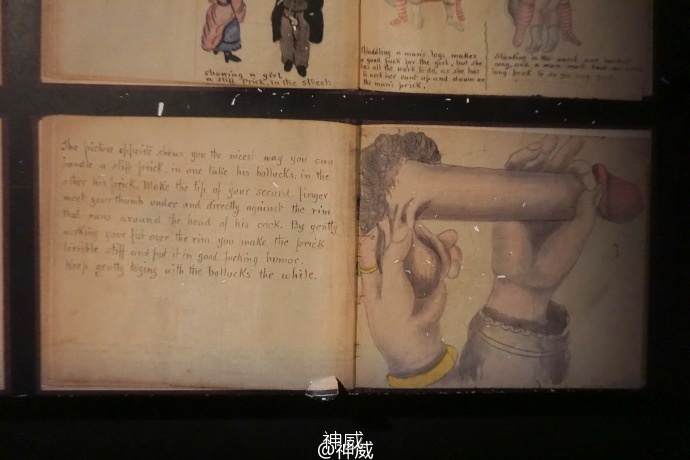 showing a girl
a stiff prick, in the street
Straddling a man's legs makes
a good fuck for the girl, but she
has all the work to do, as she has
to work her cunt up and down on
the man's prick.
Standing is the
way, and a man must have
long prick to do
The picture opposite shows you the nicest way you can
handle a stiff prick, in one take his bollucks, in the
other his prick. Make the tip of your second finger
meet your thumb under and directly against the rim
that runs around the head of his cock. By gently
working your fist over the rim you make the prick
terrible stiff and put it in good fucking humor.
Keep gently toying with the bollucks the while.
神威
@神威